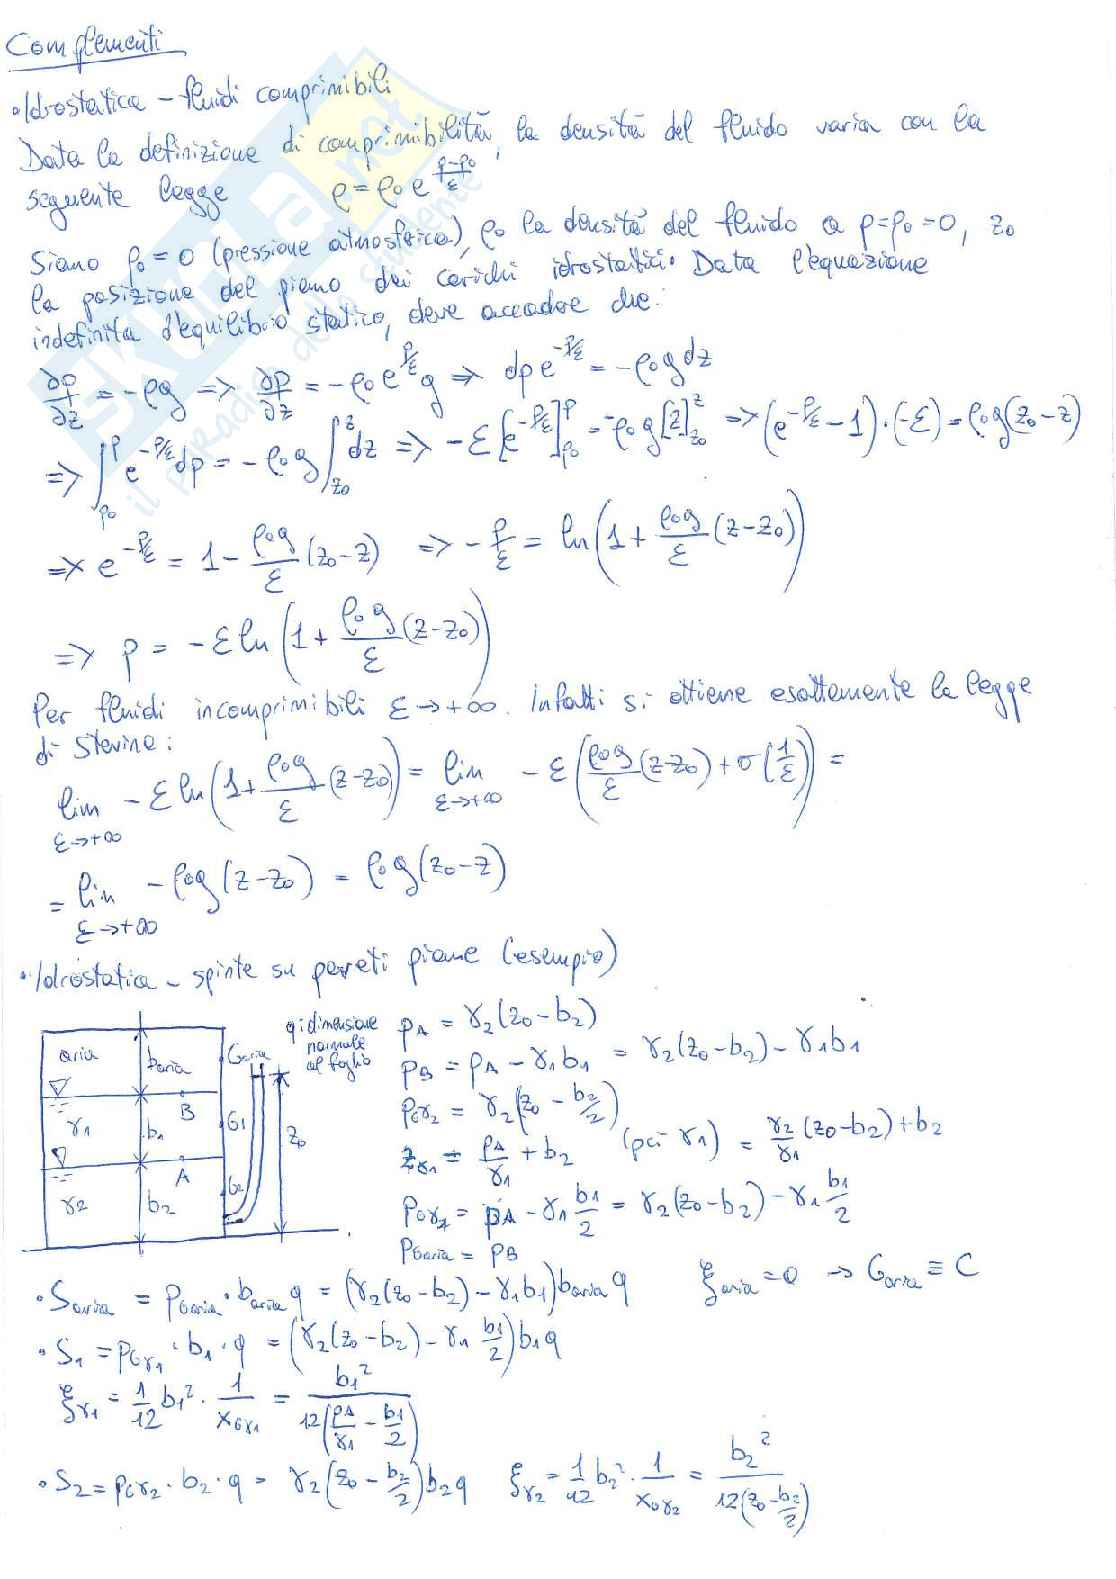 Complementi
• Idrostatica – fluidi comprimibili
Data la definizione di comprimibilità, la densità del fluido varia con la
seguente legge ρ = ρ₀ e^((p-p₀)/ε)
Siano p₀ = 0 (pressione atmosferica), ρ₀ la densità del fluido a p=p₀=0, z₀
la posizione del piano dei carichi idrostatici. Data l'equazione
indefinita d'equilibrio statico, deve accadere che:
∂p/∂z = -ρg => ∂p/∂z = -ρ₀ e^(p/ε) g => dp e^(-p/ε) = -ρ₀g dz
=> ∫_{p₀}^{p} e^(-p/ε) dp = -ρ₀g ∫_{z₀}^{z} dz => -ε[e^(-p/ε)]_{p₀}^{p} = -ρ₀g[z]_{z₀}^{z} => (e^(-p/ε) - 1)·(-ε) = ρ₀g(z₀-z)
=> e^(-p/ε) = 1 - ρ₀g/ε (z₀-z) => -p/ε = ln(1 + ρ₀g/ε (z-z₀))
=> p = -ε ln(1 + ρ₀g/ε (z-z₀))
Per fluidi incomprimibili ε→+∞. Infatti si ottiene esattamente la legge
di Stevino:
lim_{ε→+∞} -ε ln(1 + ρ₀g/ε (z-z₀)) = lim_{ε→+∞} -ε(ρ₀g/ε (z-z₀) + o(1/ε)) =
= lim_{ε→+∞} -ρ₀g(z-z₀) = ρ₀g(z₀-z)
• Idrostatica – spinte su pareti piane (esempio)
aria
b_aria
G_aria
q: dimensione
normale
al foglio
B
γ₁
b₁
G₁
z₀
A
γ₂
b₂
G₂
p_A = γ₂(z₀-b₂)
p_B = p_A - γ₁b₁ = γ₂(z₀-b₂) - γ₁b₁
p_Gγ₂ = γ₂(z₀ - b₂/2)
z_γ₁ = p_A/γ₁ + b₂ (pci γ₁) = γ₂/γ₁ (z₀-b₂) + b₂
p_Gγ₁ = p_A - γ₁ b₁/2 = γ₂(z₀-b₂) - γ₁ b₁/2
p_Garia = p_B
• S_aria = p_Garia · b_aria q = (γ₂(z₀-b₂) - γ₁b₁) b_aria q ξ_aria = 0 → G_aria ≡ C
• S₁ = p_Gγ₁ · b₁ · q = (γ₂(z₀-b₂) - γ₁ b₁/2) b₁q
ξ_γ₁ = 1/12 b₁² · 1/x_Gγ₁ = b₁²/(12(p_A/γ₁ - b₁/2))
• S₂ = p_Gγ₂ · b₂ · q = γ₂(z₀ - b₂/2) b₂q ξ_γ₂ = 1/12 b₂² · 1/x_Gγ₂ = b₂²/(12(z₀ - b₂/2))
SKUOLA.net
il paradiso dello studente